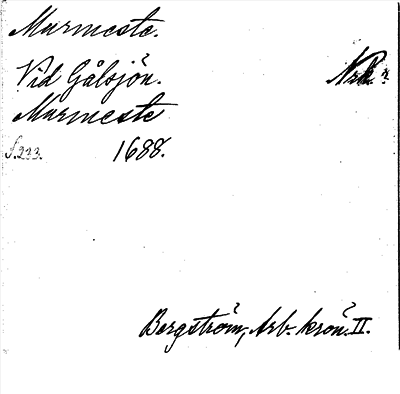 Murmeste.
Vid Gålsjön. Nrk.
Murmeste
s.233. 1688.
Bergström, Arb. krön. II.